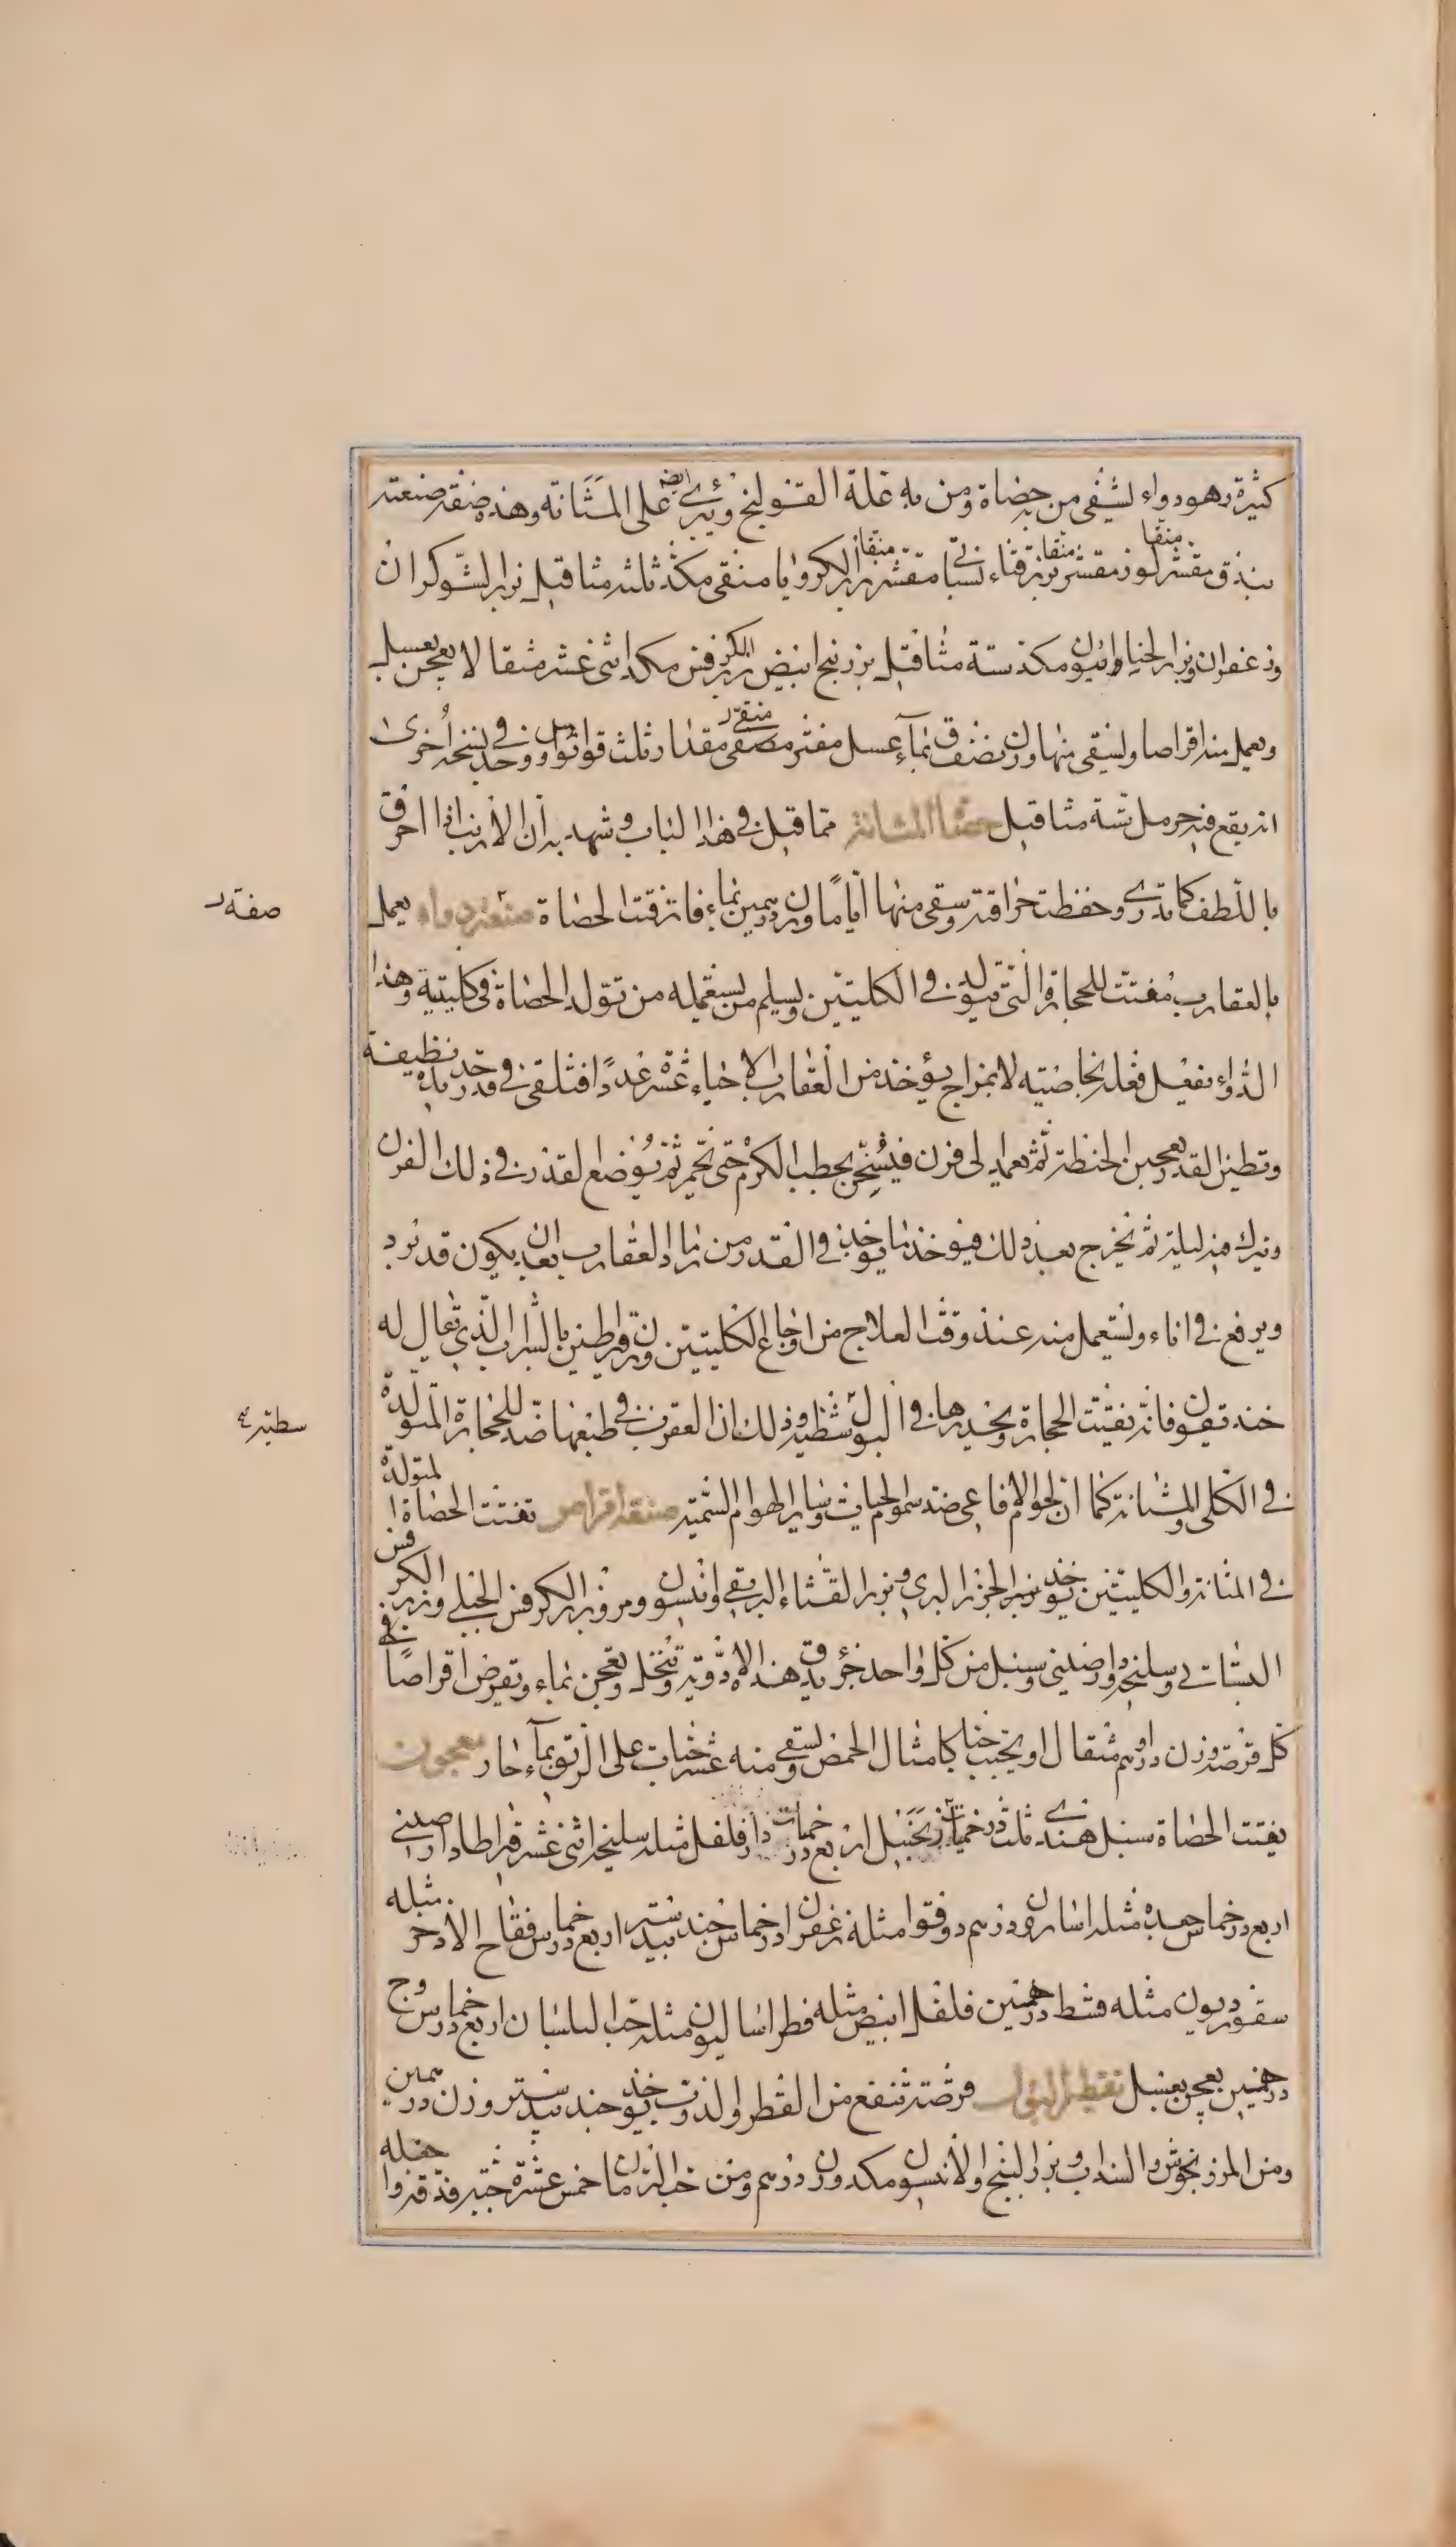 كثيرة وهو دواء يشفي من به حصاة ومن به علة القولنج ويبرئ ايضا على المثانة وهذه صفة صنعته
بندق مقشر منقا لوز مقشر منقا بزر قثاء بستاني مقشر منقا بزر الكرويا منقى مكد ثلثة مثاقيل بزر الشوكران
وزعفران وبزر الخيار وافيون مكد ستة مثاقيل بزر بنج ابيض بزر الكرفس مكد اثنى عشر مثقالا يعجن بعسل
ويعمل منه اقراصا ويسقى منها وزن نصف ق بماء عسل مفتر مصفى مقدار ثلث قواثوس وفي نسخة أخرى
انه يقع فيه حرمل ستة مثاقيل حصا المثانة مما قيل في هذا الباب وشهد به أن الارنب اذا احرق
باللطف كما تدري وحفظت حراقته وسقى منها أياما وزن درهمين بماء فاتر فتت الحصاة صنعة دواء يعمل
صفة
بالعقارب مفتت للحجارة التي تتولد في الكليتين ويسلم من يستعمله من تولد الحصاة في كليتيه وهذا
الدواء يفعل فعله بخاصيته لا بمزاج يؤخذ من العقارب الاحياء عشرة عددا فتلقى في قدر جديدة نظيفة
وتطين القدر بعجين الحنطة ثم يعمد الى فرن فيسخن بحطب الكرم حتى يحمر ثم يوضع القدر في ذلك الفرن
ويترك فيه ليلة ثم يخرج بعد ذلك فيؤخذ ما يوجد في القدر من رماد العقارب بعد ان يكون قد برد
ويرفع في اناء ويستعمل منه عند وقت العلاج من اوجاع الكليتين وزن قيراطين بالشراب الذي يقال له
خنديقون فانه يفتت الحجارة ويحدرها في البول وذلك ان العقرب في طبعها ضد للحجارة المتولدة
سطيره
في الكلى والمثانة كما ان لحوم الافاعي ضد سموم الحيات وساير الهوام السمية صنعة اقراص تفتت الحصاة المتولدة
في المثانة والكليتين يوخذ بزر الجزر البري وبزر القثاء البري وانيسون ومرو وبزر الكرفس الجبلي وبزر الكرفس
البستاني وسليخه ودارصيني وسنبل من كل واحد جزء يدق هذه الادوية وتنخل وتعجن بماء وتقرص اقراصا في
كل قرصة وزن درهم او مثقال او يحبب حبا كامثال الحمص ويسقى منه عشر حبات على الريق بماء حار معجون
يفتت الحصاة سنبل هندي ثلث درخميات زنجبيل اربع درخميات دار فلفل مثله سليخه اثنى عشر قيراطا دارصيني
اربع درخماس جعده مثله اسارون درهم دوقوا مثله زعفران درخماس جند بيدستر اربع درخماس فقاح الاذخر مثله
سقورديون مثله قسط درهمين فلفل ابيض مثله فطراساليون مثله حب البلسان اربع درخماس وج
درهمين يعجن بعسل تقطير البول قرصة تنفع من القطر ولذ يوخذ جند بيدستر وزن درهمين
ومن المرزنجوش والسداب وبزر البنج والانيسون مكد وزن درهم ومن حب الرمان خمس عشرة حبة